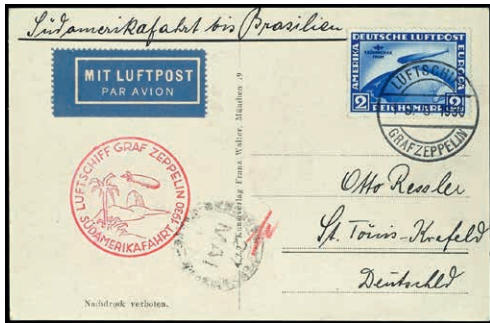 Südamerikafahrt bis Brasilien
MIT LUFTPOST
PAR AVION
AMERIKA
DEUTSCHE LUFTPOST
EUROPA
SÜDAMERIKA
FAHRT
2 REICHSMARK 2
LUFTSCHIFF
1930
GRAF ZEPPELIN
LUFTSCHIFF GRAF ZEPPELIN
SÜDAMERIKAFAHRT 1930
Kunstverlag Franz Walter, München 19
Otto Ressler
St. Tönis-Krefeld
Deutschld
Nachdruck verboten.